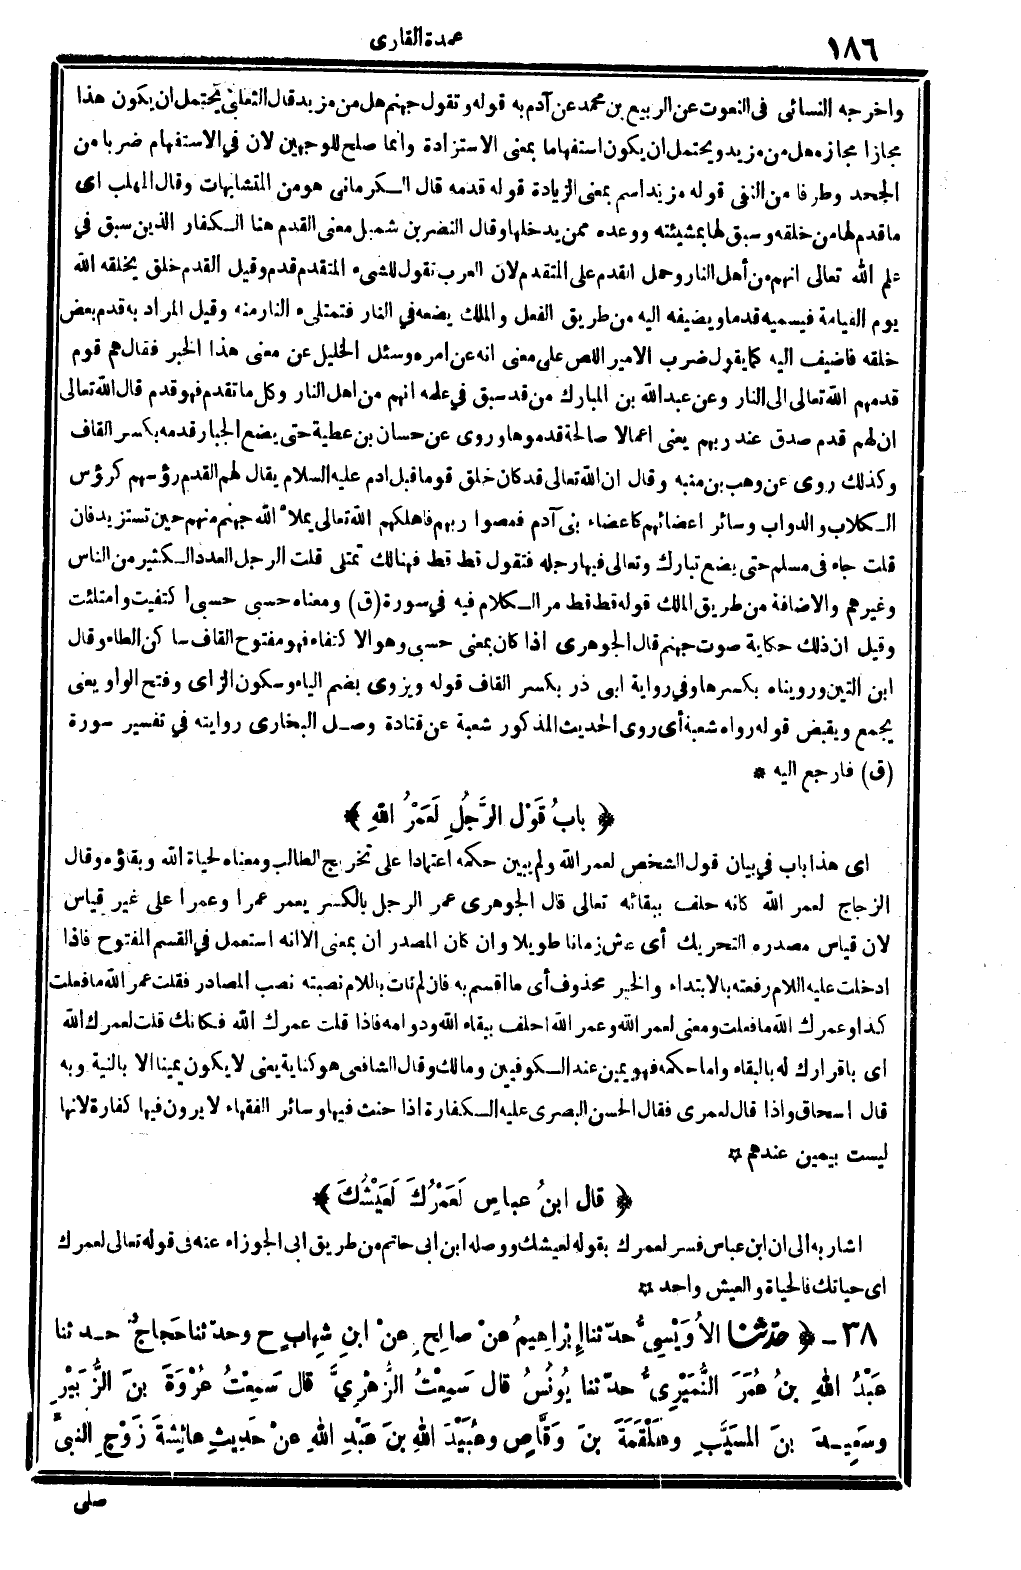 ١٨٦
عمدة القارى
واخرجه النسائى فى النعوت عن الربيع بن محمد عن آدم به قوله وتقول جهنم هل من مزيد قال الثعلبى يحتمل ان يكون هذا
مجازا مجازه هل من مزيد ويحتمل ان يكون استفهاما بمعنى الاستزادة وانما صلح للوجهين لان في الاستفهام ضربا من
الجحد وطرفا من النفى قوله مزيد اسم بمعنى الزيادة قوله قدمه قال الكرمانى هو من المتشابهات وقال المهلب اى
ما قدم لها من خلقه وسبق لها بمشيئته ووعده ممن يدخلها وقال النضر بن شميل معنى القدم هنا الكفار الذين سبق في
علم الله تعالى انهم من أهل النار وحمل القدم على المتقدم لان العرب تقول للشيء المتقدم قدم وقيل القدم خلق يخلقه الله
يوم القيامة فيسميه قدما ويضيفه اليه من طريق الفعل والملك يضعه في النار فتمتلىء النار منه وقيل المراد به قدم بعض
خلقه فاضيف اليه كما يقول ضرب الامير اللص على معنى انه عن امره وسئل الخليل عن معنى هذا الخبر فقال هم قوم
قدمهم الله تعالى الى النار وعن عبد الله بن المبارك من قد سبق في علمه انهم من اهل النار وكل ما تقدم فهو قدم قال الله تعالى
ان لهم قدم صدق عند ربهم يعنى اعمالا صالحة قدموها وروى عن حسان بن عطية حتى يضع الجبار قدمه بكسر القاف
وكذلك روى عن وهب بن منبه وقال ان الله تعالى قد كان خلق قوما قبل ادم عليه السلام يقال لهم القدم رؤسهم كرؤس
الكلاب والدواب وسائر اعضائهم كاعضاء بنى آدم فعصوا ربهم فاهلكهم الله تعالى يملأ الله جهنم منهم حين تستزيد فان
قلت جاء فى مسلم حتى يضع تبارك وتعالى فيها رجله فتقول قط قط فهنالك تمتلى قلت الرجل العدد الكثير من الناس
وغيرهم والاضافة من طريق الملك قوله قط قط مر الكلام فيه في سورة (ق) ومعناه حسبى حسبى اكتفيت وامتلئت
وقيل ان ذلك حكاية صوت جهنم قال الجوهرى اذا كان بمعنى حسبى وهو الاكتفاء فهو مفتوح القاف ساكن الطاء وقال
ابن التين ورويناه بكسرها وفي رواية ابى ذر بكسر القاف قوله ويزوى بضم الياء وسكون الزاى وفتح الواو يعنى
يجمع ويقبض قوله رواه شعبة أى روى الحديث المذكور شعبة عن قتادة وصل البخارى روايته في تفسير سورة
(ق) فارجع اليه *
﴿ بابُ قَوْل الرَّجُلِ لَعَمْرُ اللهِ ﴾
اى هذا باب في بيان قول الشخص لعمر الله ولم يبين حكمه اعتمادا على تخريج الطالب ومعناه لحياة الله وبقاؤه وقال
الزجاج لعمر الله كانه حلف ببقائه تعالى قال الجوهرى عمر الرجل بالكسر يعمر عمرا وعمرا على غير قياس
لان قياس مصدره التحريك أى عاش زمانا طويلا وان كان المصدر ان بمعنى الا انه استعمل في القسم المفتوح فاذا
ادخلت عليه اللام رفعته بالابتداء والخبر محذوف أى ما أقسم به فان لم تات باللام نصبته نصب المصادر فقلت عمر الله ما فعلت
كذا وعمرك الله ما فعلت ومعنى لعمر الله وعمر الله احلف ببقاء الله ودوامه فاذا قلت عمرك الله فكانك قلت لعمرك الله
اى باقرارك له بالبقاء واما حكمه فهو يمين عند الكوفيين ومالك وقال الشافعى هو كناية يعنى لا يكون يمينا الا بالنية وبه
قال اسحاق واذا قال لعمرى فقال الحسن البصرى عليه الكفارة اذا حنث فيها وسائر الفقهاء لا يرون فيها كفارة لانها
ليست بيمين عندهم *
﴿ قال ابنُ عباسٍ لَعَمْرُكَ لَعَيْشُكَ ﴾
اشار به الى ان ابن عباس فسر لعمرك بقوله لعيشك ووصله ابن ابى حاتم من طريق ابى الجوزاء عنه فى قوله تعالى لعمرك
اى حياتك فالحياة والعيش واحد *
٣٨ - ﴿ حدّثنا الأُوَيْسِيُّ حدّثنا إبْراهِيمُ عنْ صالِحٍ عنْ ابنِ شِهابٍ ح وحدّثنا حَجاجٌ حدثنا
عَبْدُ اللهِ بنُ عُمَرَ النُّمَيْرِيُّ حدّثنا يُونُسُ قال سَمِعْتُ الزُّهْرِيَّ قال سَمِعْتُ عُرْوَةَ بنَ الزُّبَيْرِ
وسَعِيدَ بنَ المُسَيَّبِ وعَلْقَمَةَ بنَ وَقَّاصٍ وعُبَيْدَ اللهِ بنَ عَبْدِ اللهِ عنْ حَدِيثِ عائِشَةَ زَوْجِ النبيِّ
صلى